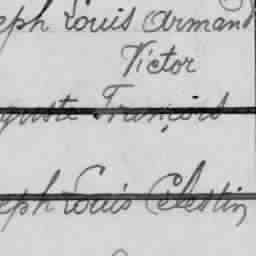 eph Louis Armand
Victor
guste François
eph Louis Célestin